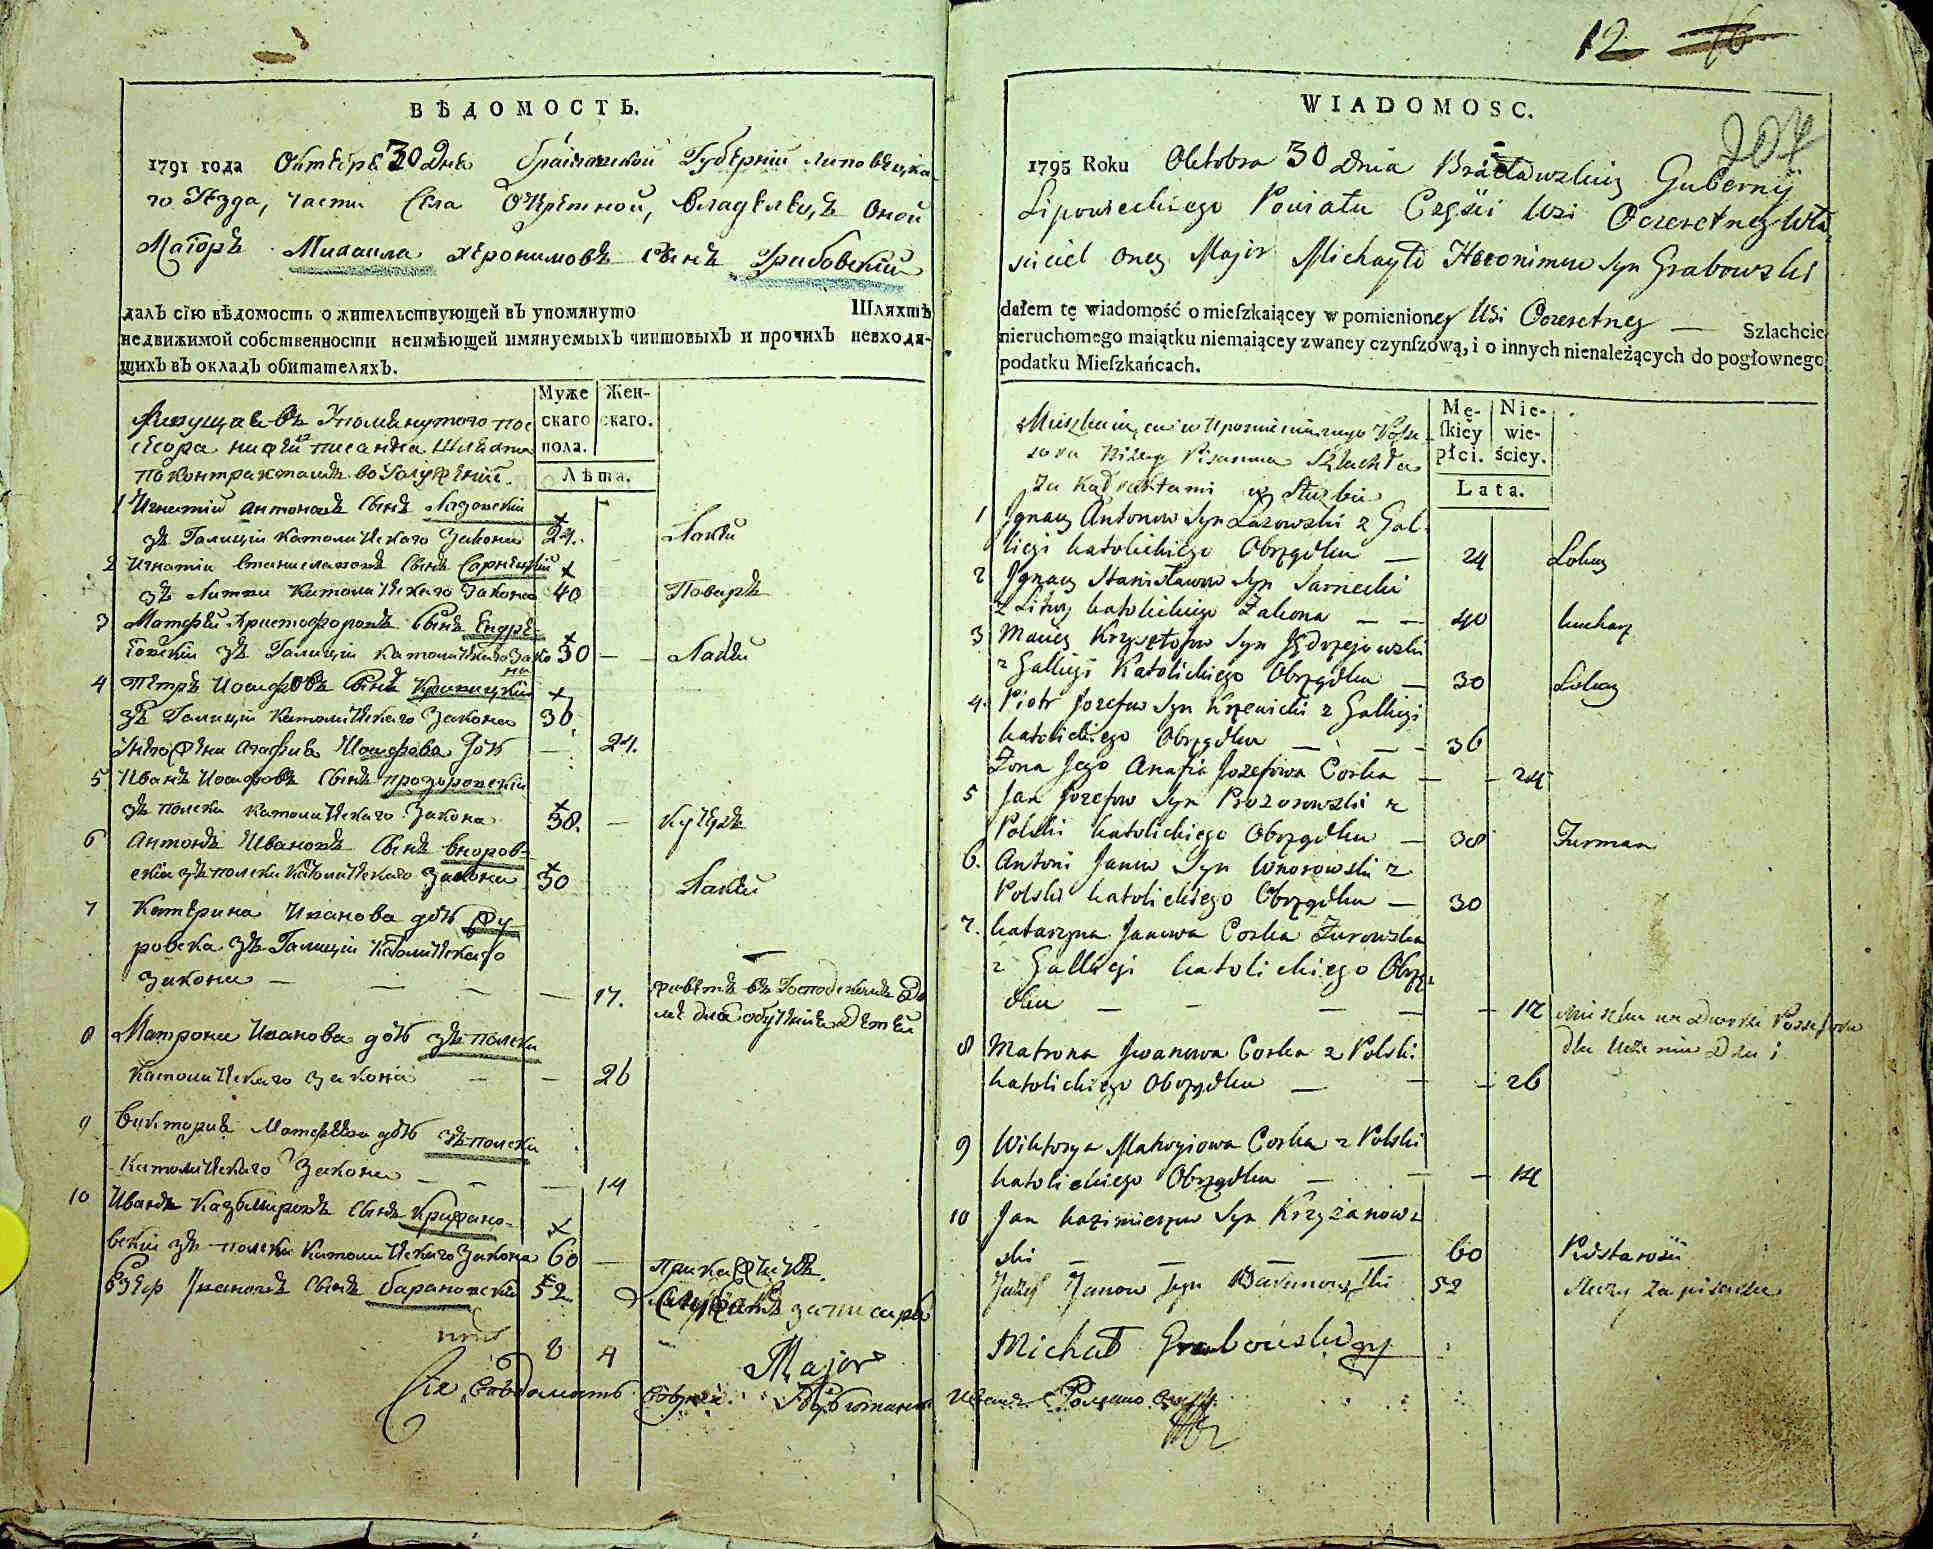 ВѢДОМОСТЬ.
1791 года Октебрѣ 30 Дня Брацлавской Губерніи Липовецка-
го Уезда, части Села Очеретной, Владелецъ Оной
Маіоръ Михаила Херонимовъ Сынъ Грабовский
далъ сію вѣдомость о жительствующей въ упомянуто Шляхтѣ
недвижимой собственности неимѣющей имянуемыхъ чиншовыхъ и прочихъ невходя-
щихъ въ окладъ обитателяхъ.
Муже Жен-
скаго скаго.
пола.
Лѣта.
по контрактамъ
1 Игнатій Антоновъ Сынъ Лазовскій
зъ Галиціи Католическаго Закона 24. Лакій
2 Игнатій Станиславовъ Сынъ Сарнецкій
зъ Литви Католическаго Закона 40 Поваръ
3 Матфій Христофоровъ Сынъ Ендре-
зъ Галиціи Католическаго Зако 30 — Лакій
на
4 Петръ Иосифовъ Сынъ
зъ Галиціи Католическаго Закона 36.
Агафія Иосифова дочь — 24.
5 Иванъ Иосифовъ Сынъ Прозоровскій
зъ Полски Католическаго Закона 38. — Кучеръ
6 Антонъ Ивановъ Сынъ Вноров-
скій зъ Полски Католическаго Закона 30 Лакій
7 Катерина Иванова дочь Жу
ровска зъ Галиціи Католическаго
Закона — — — — 17. живетъ въ Господскомъ до
мѣ для обученія Детей
8 Матрона Иванова дочь зъ Полски
Католическаго Закона — — 26
9 Викторія Матфеева дочь зъ Полски
Католическаго Закона — — — 14
10 Иванъ Казымировъ Сынъ Крижано-
вскій зъ Полски Католическаго Закона 60 —
Іозеф Ивановъ Сынъ Барановскій 52
8 4 Major
12 16
204
WIADOMOSC.
1795 Roku Oktobra 30 Dnia Bracławskiey Gubernij
Lipowieckiego Powiatu Częsci Wsi Oczeretney Wła-
sciciel oney Major Michayło Heronimow Syn Grabowski
dałem tę wiadomość o mieſzkaiącey w pomienioney Wsi Oczeretney — Szlachcie
nieruchomego maiątku niemaiącey zwaney czynſzową, i o innych nienależących do pogłownego
podatku Mieſzkańcach.
Mę- Nie-
ſkiey wie-
płci. ściey.
Lata.
saru Nizey Pisanna Szlachta
za Kontraktami w Słuzbie
1 Jgnacy Antonow Syn Lazowski z Gal-
licyi katolickiego Obrządku — 24 Lokay
2 Jgnacy Stanisławow Syn Sarnecki
z Litwy katolickiego Zakona — — 40 kucharz
3 Maciey Krzysztofow Syn Jędrzejowski
z Gallicyi Katolickiego Obrządku — 30 Lokay
4. Piotr Jozefow Syn Krzewicki z Gallicyi
katolickiego Obrządku — — — 36
Zona Jego Anafia Jozefowa Corka — — 24
5 Jan Jozefow Syn Prozorowski z
Polski katolickiego Obrządku — 38 Furman
6. Antoni Janow Syn Wnorowski z
Polski katolickiego Obrządku — 30
7. katarzyna Janowa Corka Żurowska
z Gallicyi katolickiego Obrzą-
dku — — — — — 17 Mieszka we Dworze Possessora
dla Uczenia Dzieci
8 Matrona Jwanowa Corka z Polski
katolickiego Obrządku — — — 26
9 Wiktorya Matwyiowa Corka z Polski
katolickiego Obrządku — — — 14
10 Jan kazimierzow Syn Krzyżanow-
ski — — — — 60 Podstarosci
Jozef Janow Syn Baranowski 52 Słuzy za pisarza
Michał Grabowski